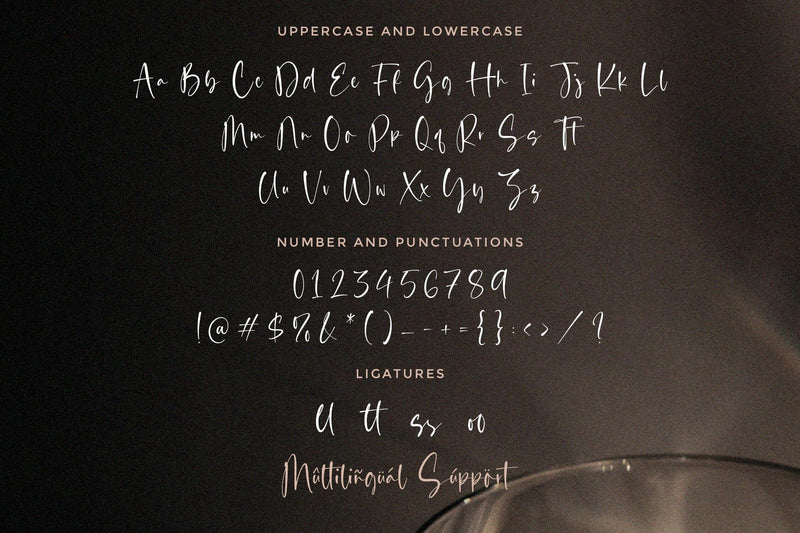 UPPERCASE AND LOWERCASE
Aa Bb Cc Dd Ee Ff Gg Hh Ii Jj Kk Ll
Mm Nn Oo Pp Qq Rr Ss Tt
Uu Vv Ww Xx Yy Zz
NUMBER AND PUNCTUATIONS
0123456789
!@#$%&*()_-+={}:<>/?
LIGATURES
ll tt ss oo
Mûltiliñgüál Súppört